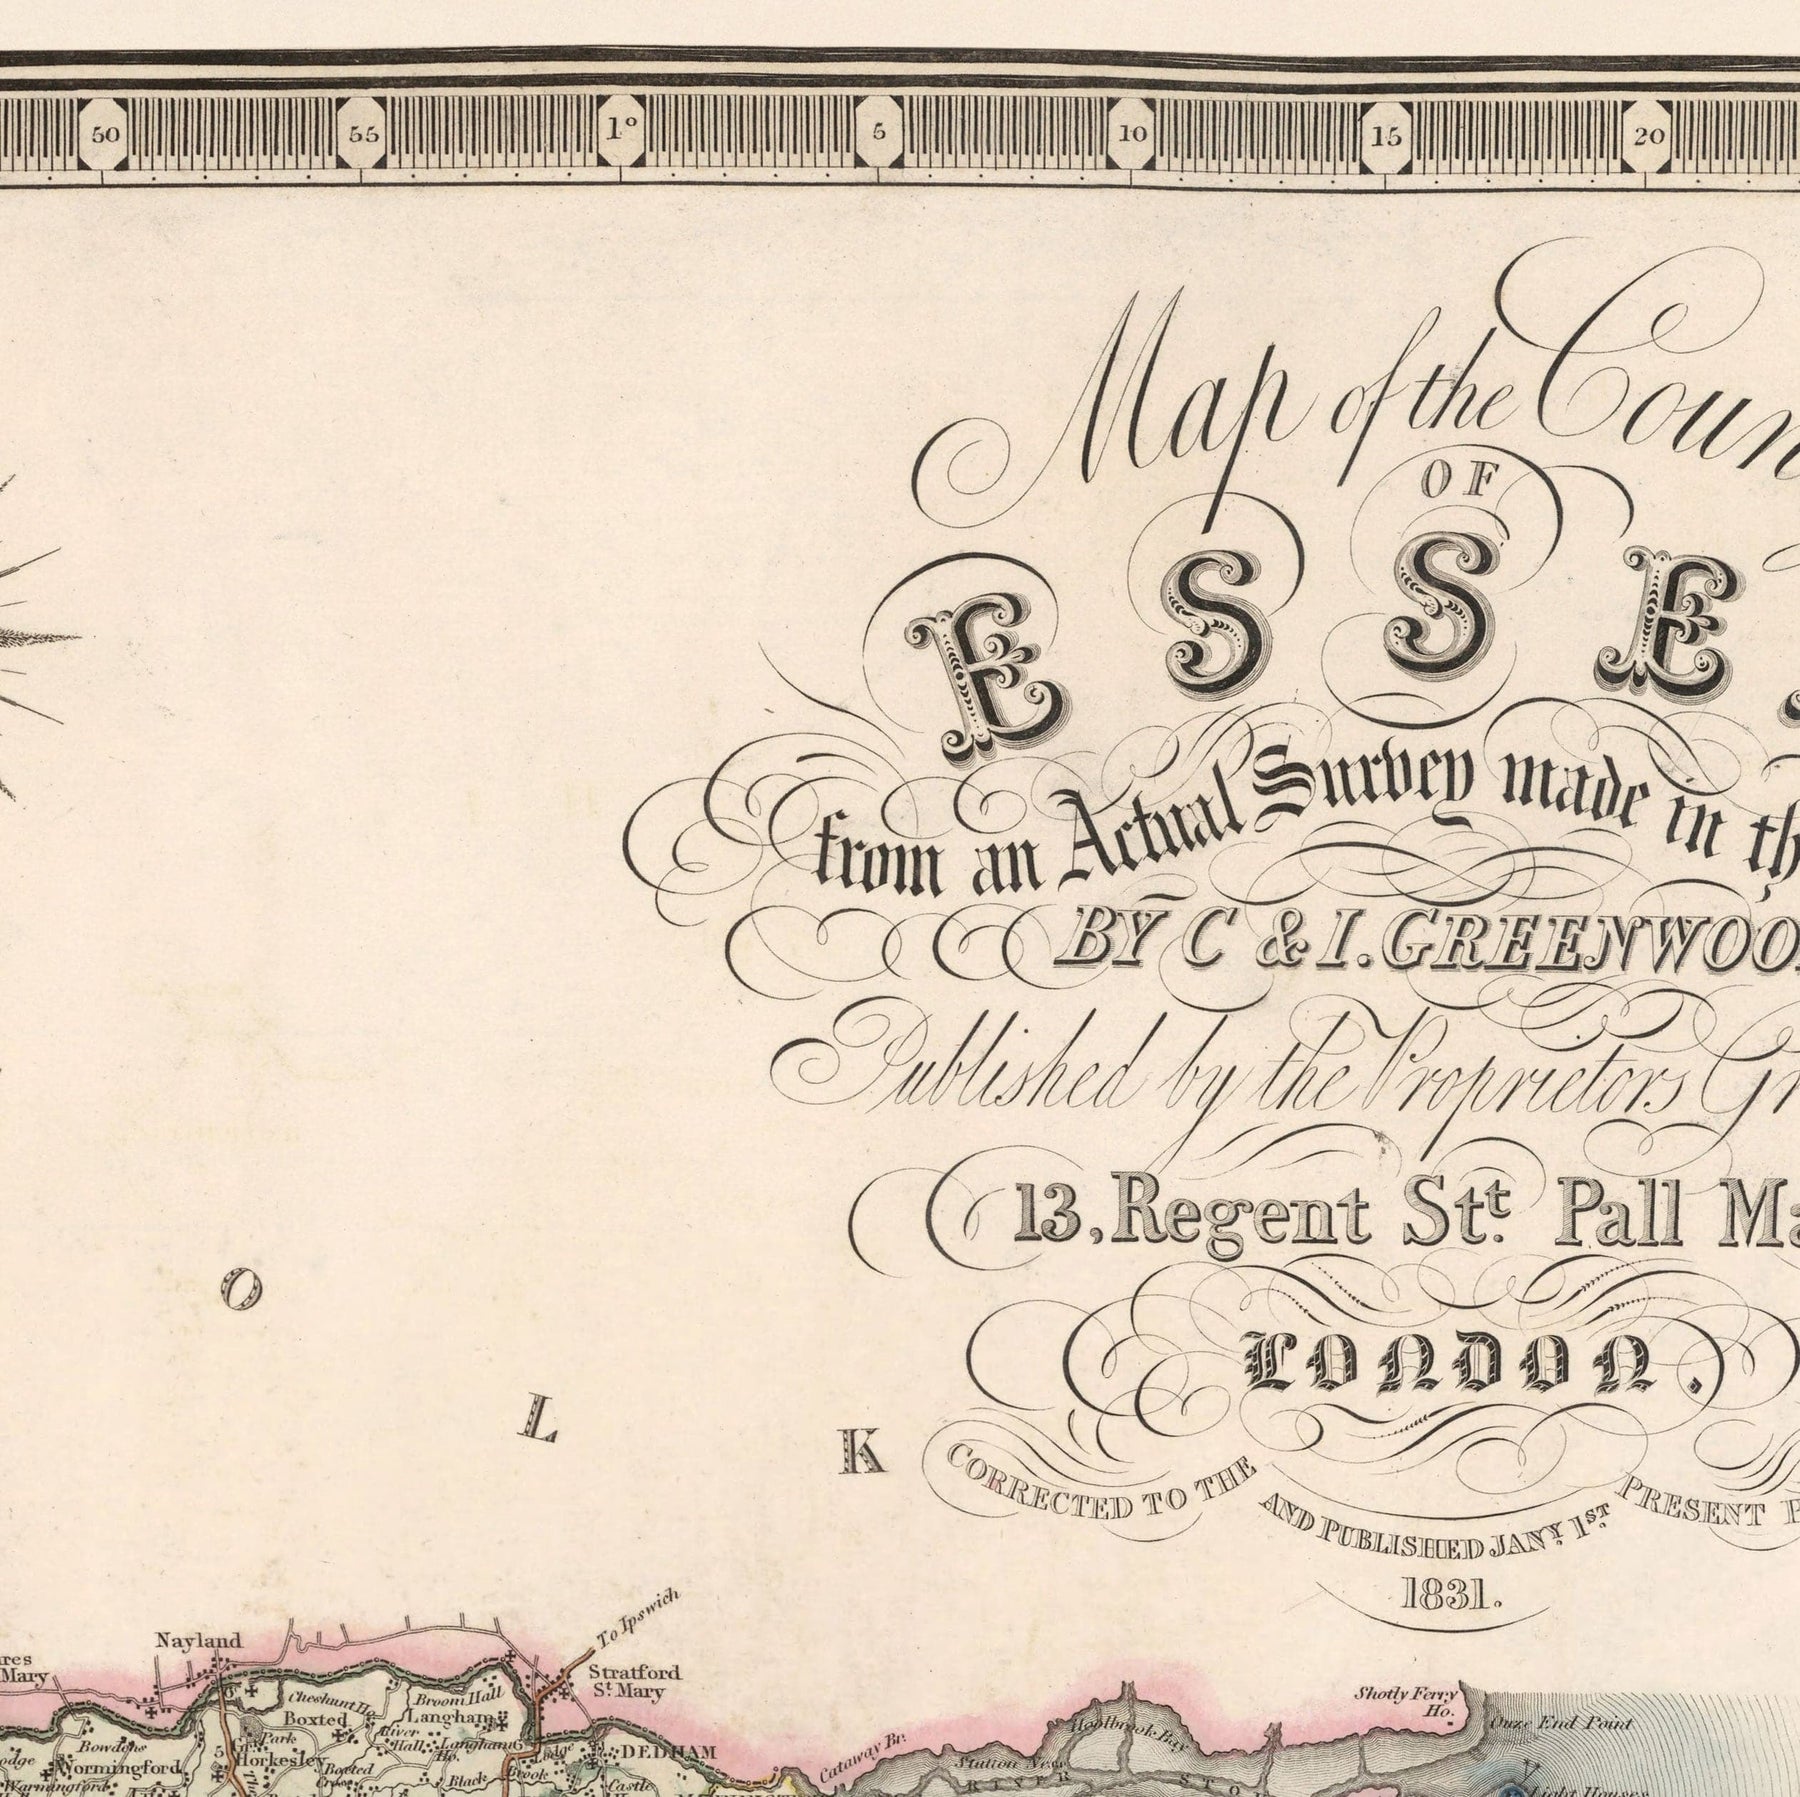 50 55 1° 5 10 15 20
Map of the Coun
OF
ESSE
from an Actual Survey made in th
BY C & I. GREENWOO
Published by the Proprietors Gr
13, Regent Stt. Pall Ma
LONDON.
O L K
CORRECTED TO THE PRESENT P
AND PUBLISHED JANY. 1ST.
1831.
To Ipswich
Nayland
res
Mary
Stratford
St. Mary
Shotly Ferry
Ho.
Cheshunt Ho.
Broom Hall
Boxted
Langham
Ouze End Point
Park
River
Hall
Langham
Ho.
Lodge
DEDHAM
Woolbrook Bay
Bowdens
odge
Wormingford
Gt.
Horkesley
Boxted
Cross
Black
Brook
Castle
Cataway Br.
Stutton Ness
RIVER STO
Warmingford
Light Houses